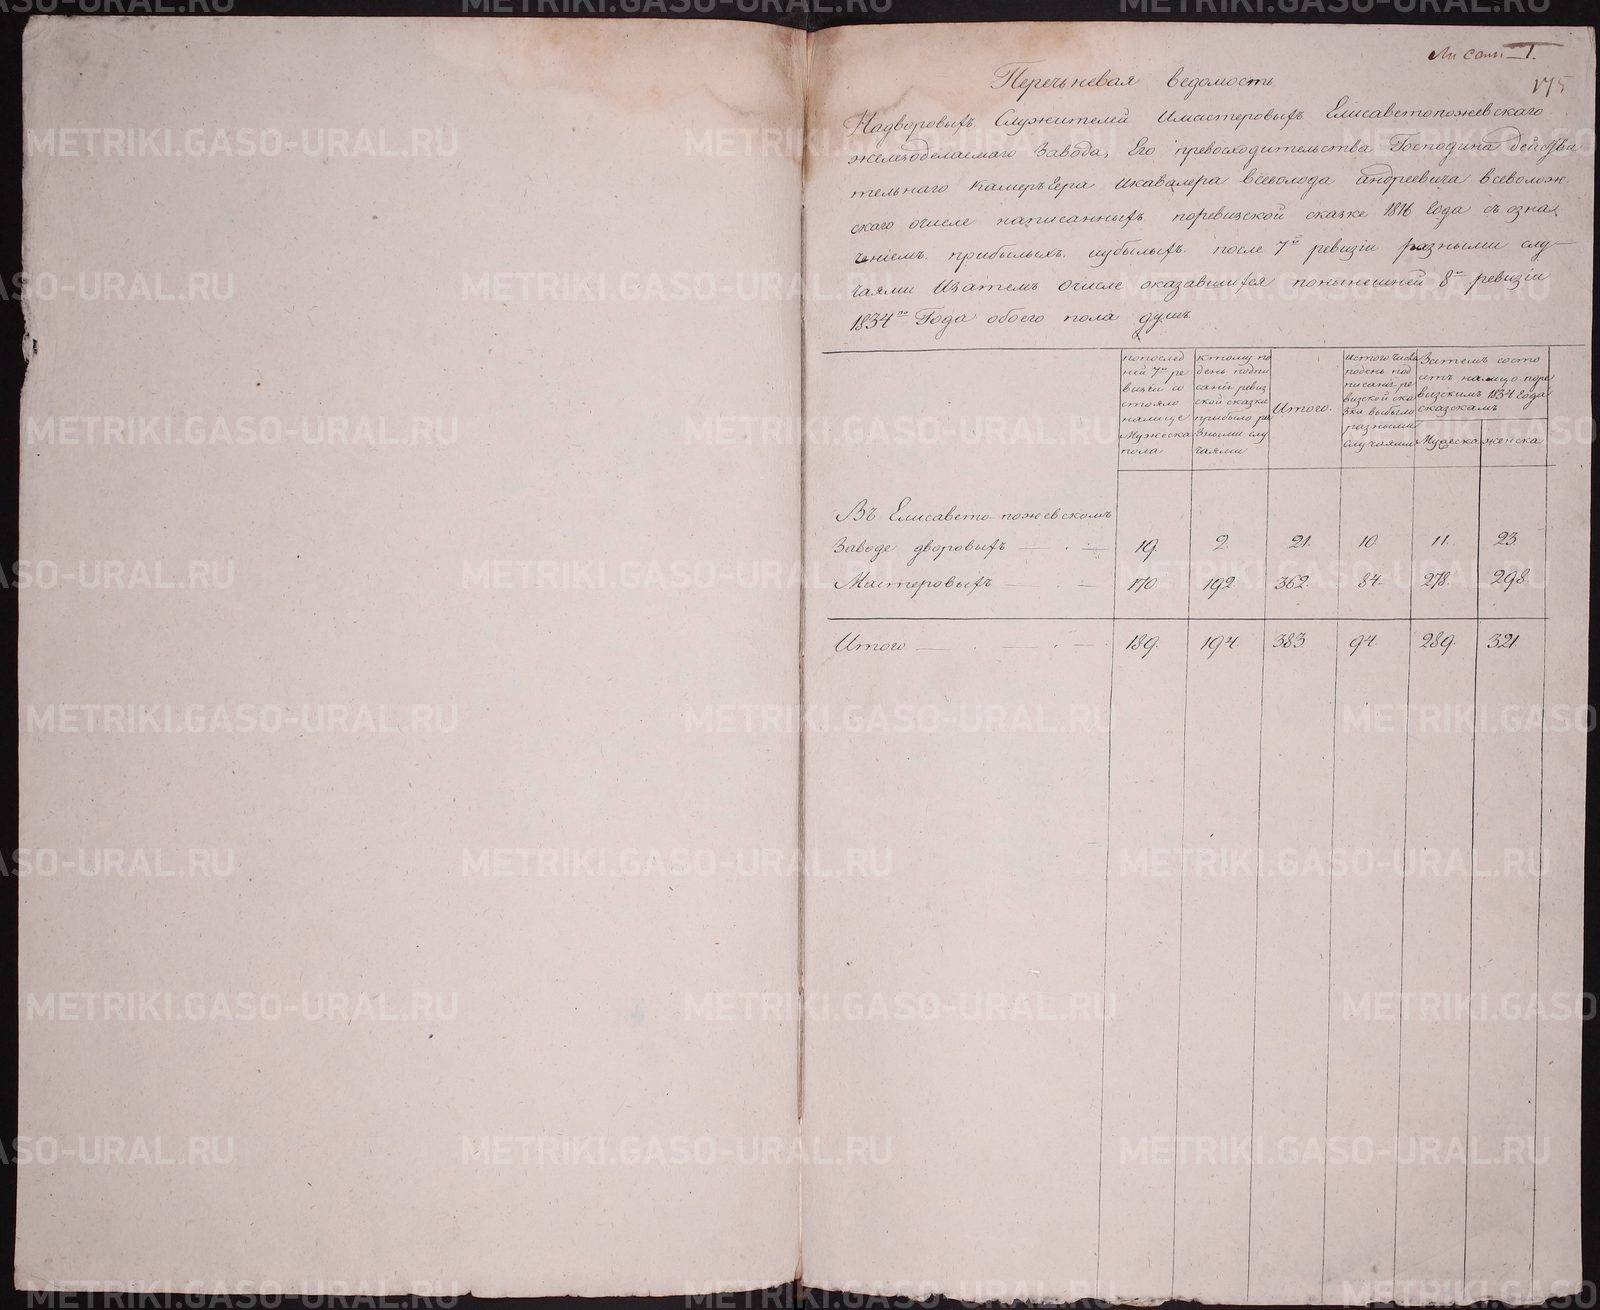 175
Перечьневая ведомость
Надворовыхъ Служителей Имастеровыхъ Елисаветопожевскаго
железоделаемаго Завода, Его превосходительства Господина действи
тельнаго Камергера Икавалера всеволода андреевича всеволож
скаго очисле написанныхъ поревизской сказке 1816 Года съ озна
чениемъ прибылыхъ иубылыхъ после 7й ревизіи разными слу-
чаями Изатемъ очисле оказавшихся понынешней 8й ревизіи
1834го Года обоего пола душъ
попослед
ней 7й ре
визеи со
стояло
налице
Мужеска
пола
ктому по
день подпи
санія ревиз
ской сказки
прибыло ра
зными слу
чаями
Итого.
Истого числа
подень под
писанія ре
визской ска
зки выбыло
разными
случаями
Затемъ состо
итъ налицо поре
визскимъ 1834 Года
сказкамъ
Мужеска женска
Въ Елисавето-пожевскомъ
Заводе дворовыхъ 19. 2. 21. 10 11. 23
Мастеровыхъ 170 192. 362. 84. 278. 298.
Итого 189. 194. 383. 94. 289. 321.
METRIKI.GASO-URAL.RU